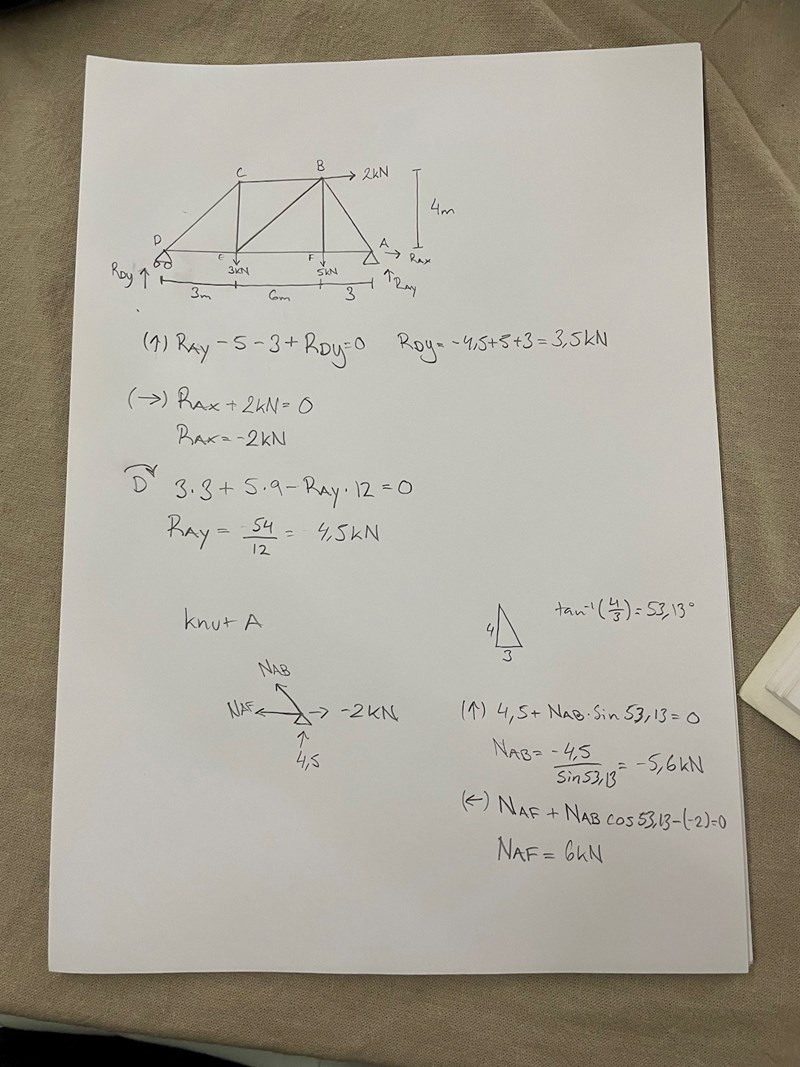 C B 2kN
4m
D E F A RAX
RDY 3kN 5kN RAY
3m 6m 3
(↑) RAY - 5 - 3 + RDY = 0 RDY = -4,5+5+3 = 3,5kN
(→) RAX + 2kN = 0
RAX = -2kN
D 3·3 + 5·9 - RAY·12 = 0
RAY = 54/12 = 4,5kN
knut A
4 3 tan⁻¹(4/3) = 53,13°
NAB
NAF -2kN
4,5
(↑) 4,5 + NAB·Sin 53,13 = 0
NAB = -4,5/Sin53,13 = -5,6kN
(←) NAF + NAB cos 53,13 - (-2) = 0
NAF = 6kN